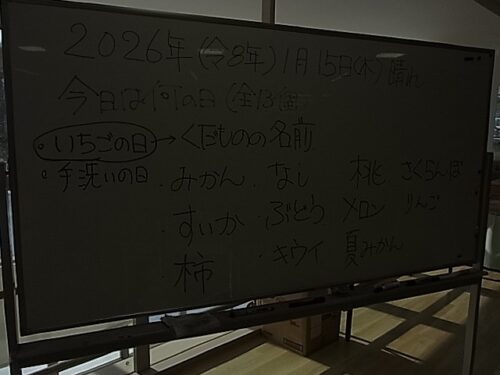 2026年(令8年)1月15日(木)晴れ
今日は何の日(全13個)
・いちごの日→くだものの名前
・手洗いの日 ・みかん ・なし 桃 さくらんぼ
・すいか ・ぶどう メロン りんご
・柿 ・キウイ 夏みかん